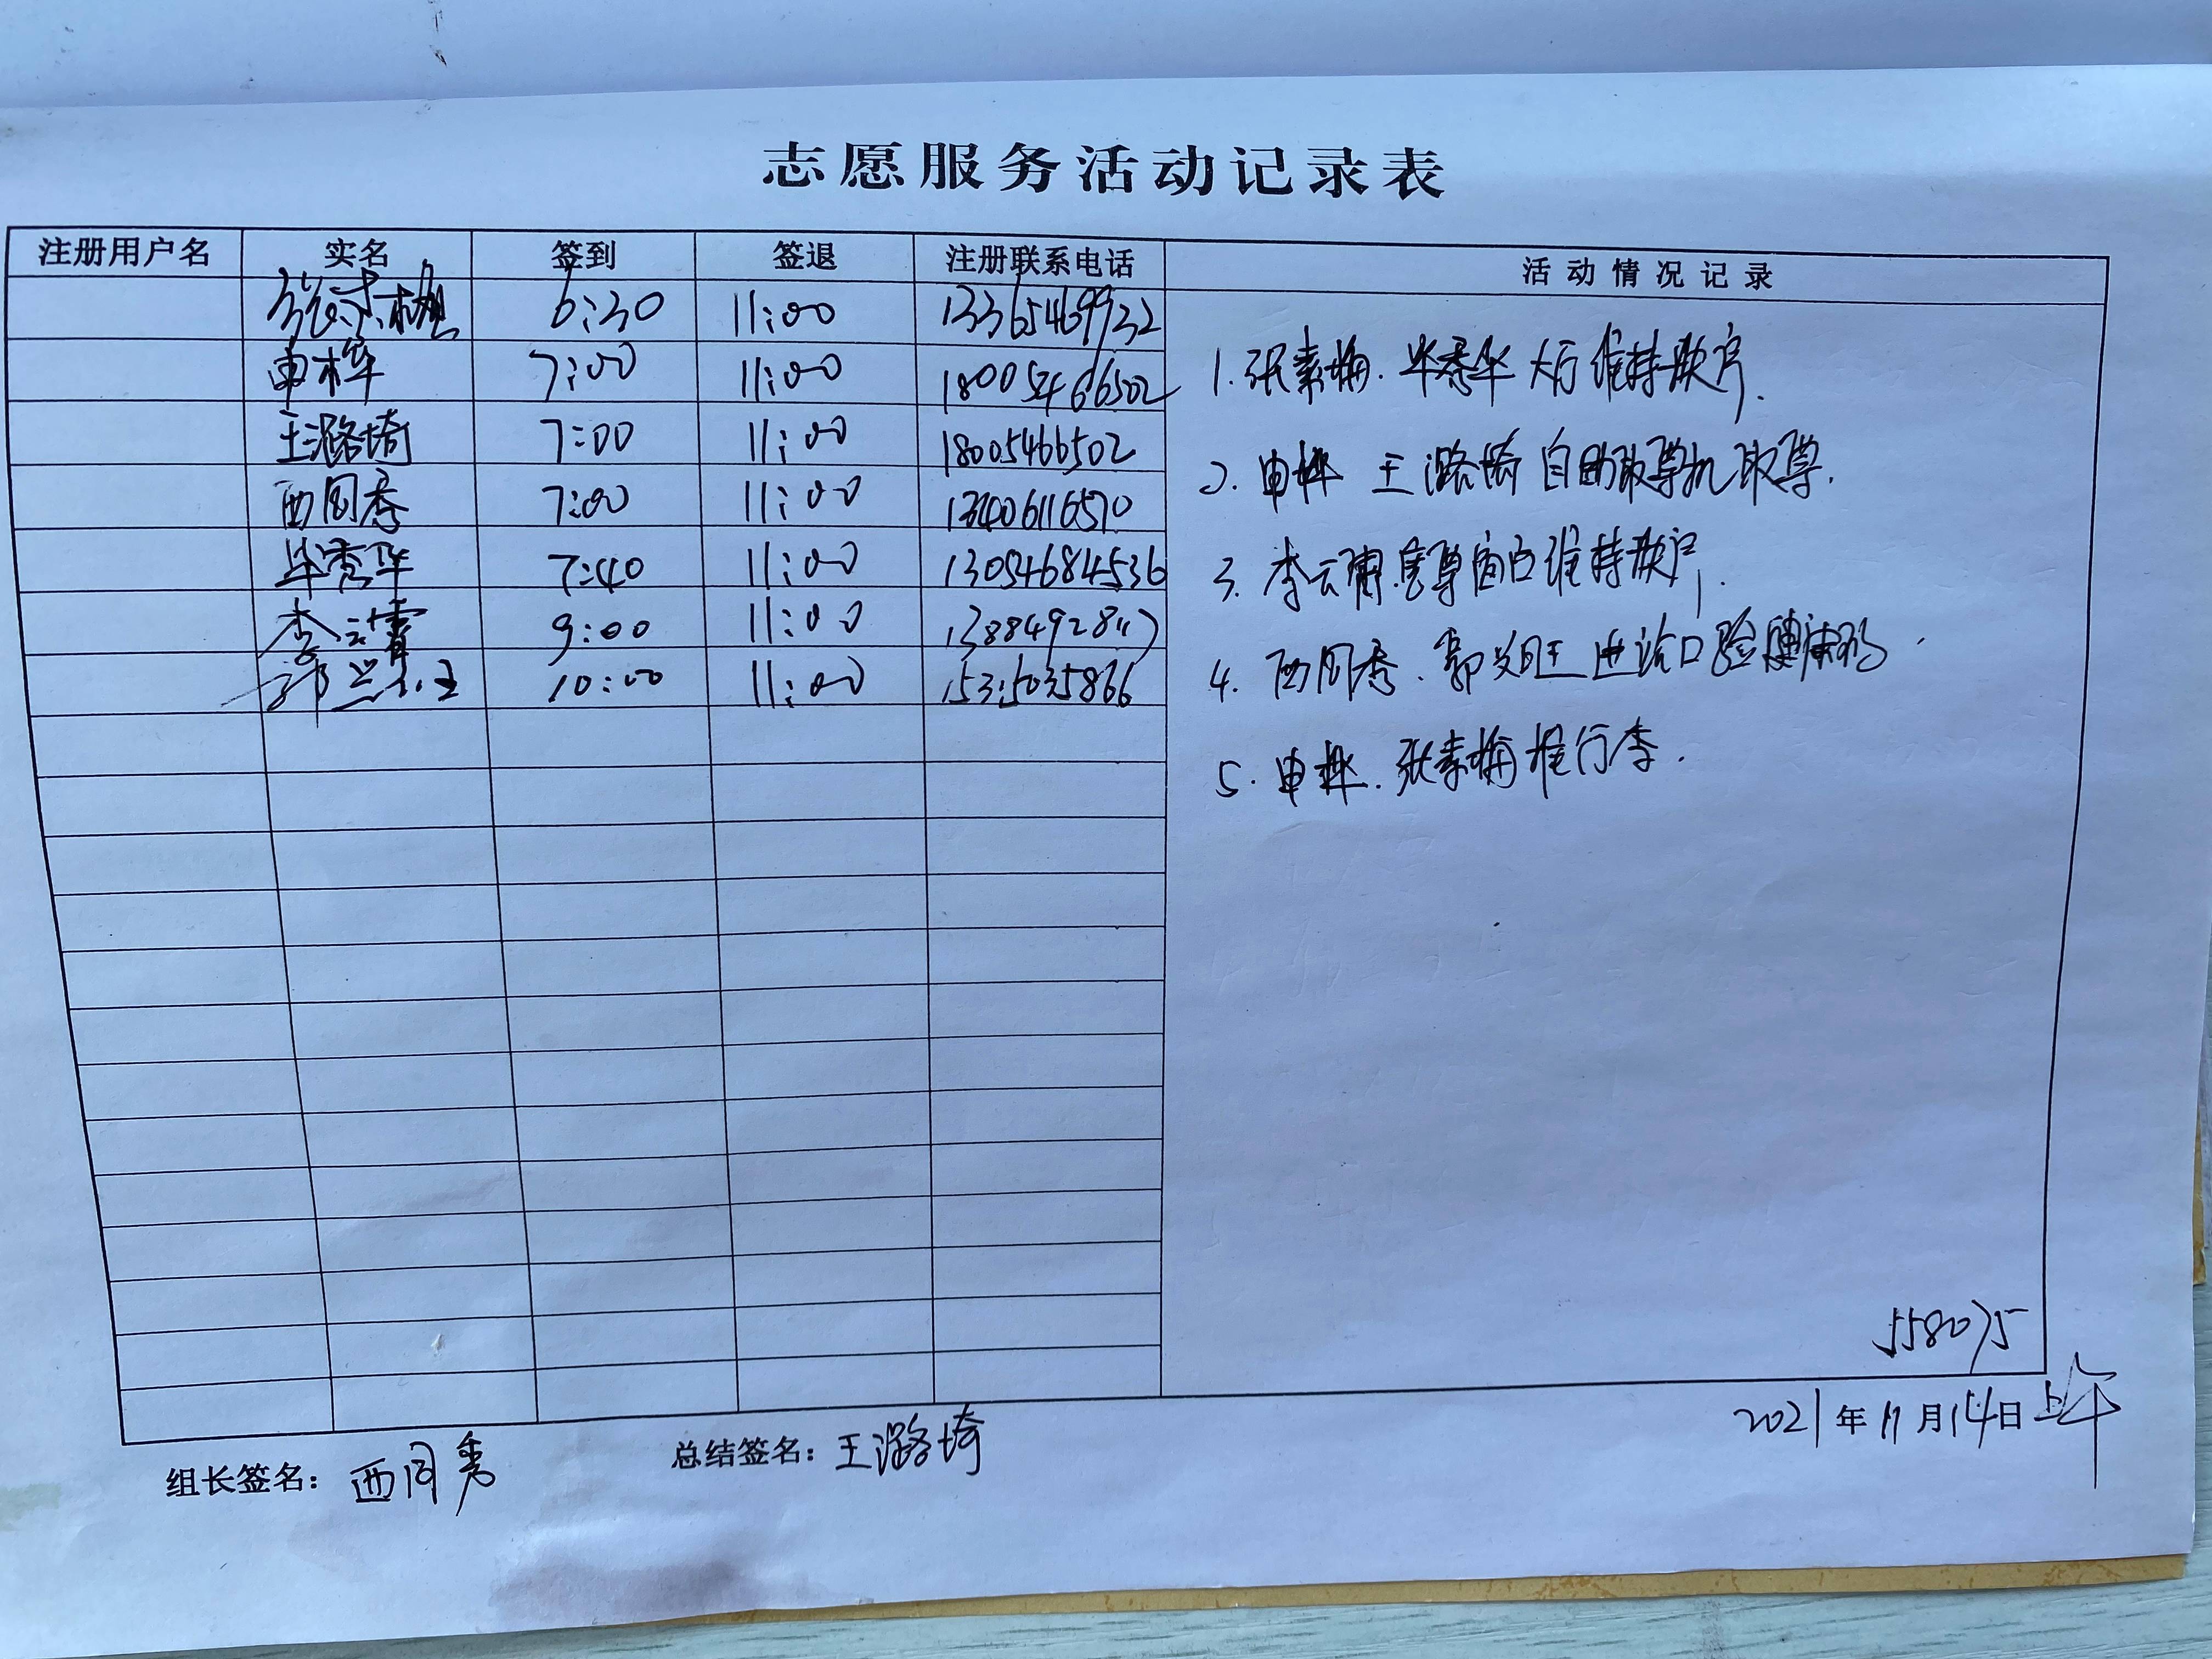 志愿服务活动记录表
注册用户名 实名 签到 签退 注册联系电话 活动情况记录
张素梅 6:30 11:00 13365469932
申桦 7:00 11:00 18005466502
王潞琦 7:00 11:00 18005466502
西同秀 7:00 11:00 13406116570
毕秀华 7:40 11:00 13054684536
李云霄 9:00 11:00
郭兴旺 10:00 11:00
1. 张素梅. 毕秀华 大厅维持秩序.
2. 申桦 王潞琦 自助取单机取单.
3. 李云霄. 窗口维持秩序.
4. 西同秀. 郭兴旺 进 口验健康码.
5. 申桦. 张素梅推行李.
558075
组长签名: 西同秀
总结签名: 王潞琦
2021年11月14日上午